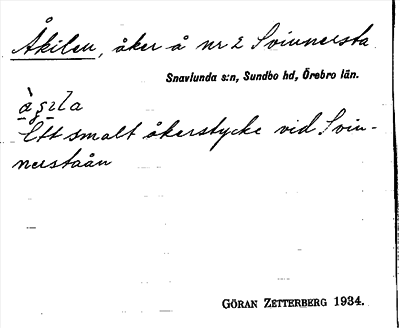 Åkilen, åker å nr 2 Svinnersta
Snavlunda s:n, Sundbo hd, Örebro län.
Ett smalt åkerstycke vid Svin-
nerstaån
GÖRAN ZETTERBERG 1934.